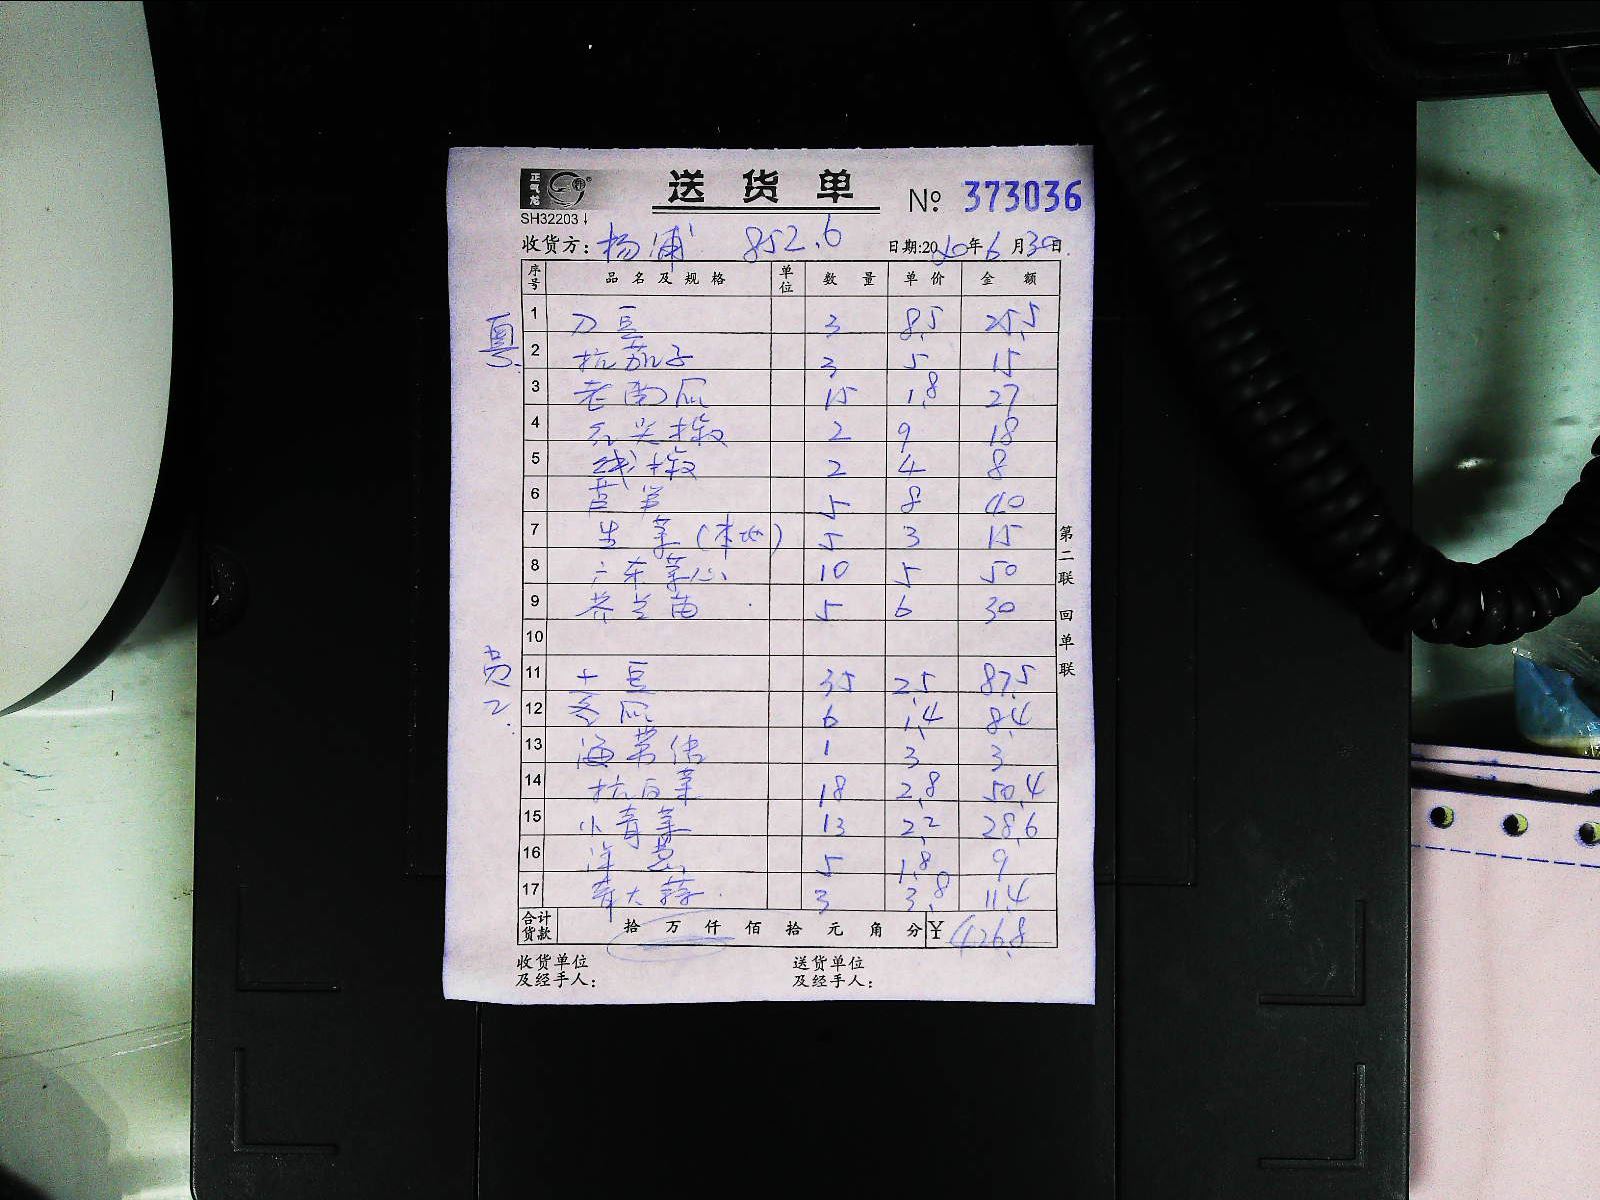 正气龙
送货单 № 373036
SH32203
收货方: 杨浦 852.6 日期:20 年6月30日
序号 品名及规格 单位 数量 单价 金额
粤
1 刀豆 3 8.5 25.5
2 杭茄子 3 5 15
3 老南瓜 15 1.8 27
4 尖椒 2 9 18
5 线椒 2 4 8
6 芦笋 5 8 40
7 生菜(本地) 5 3 15
8 广东菜心 10 5 50
9 芥兰苗 5 6 30
10
员工
11 土豆 35 2.5 87.5
12 冬瓜 6 1.4 8.4
13 海带结 1 3 3
14 杭白菜 18 2.8 50.4
15 小青菜 13 2.2 28.6
16 洋葱 5 1.8 9
17 青大蒜 3 3.8 11.4
合计货款 拾万仟佰拾元角分 ¥ 426.8
收货单位及经手人: 送货单位及经手人:
第二联 回单联